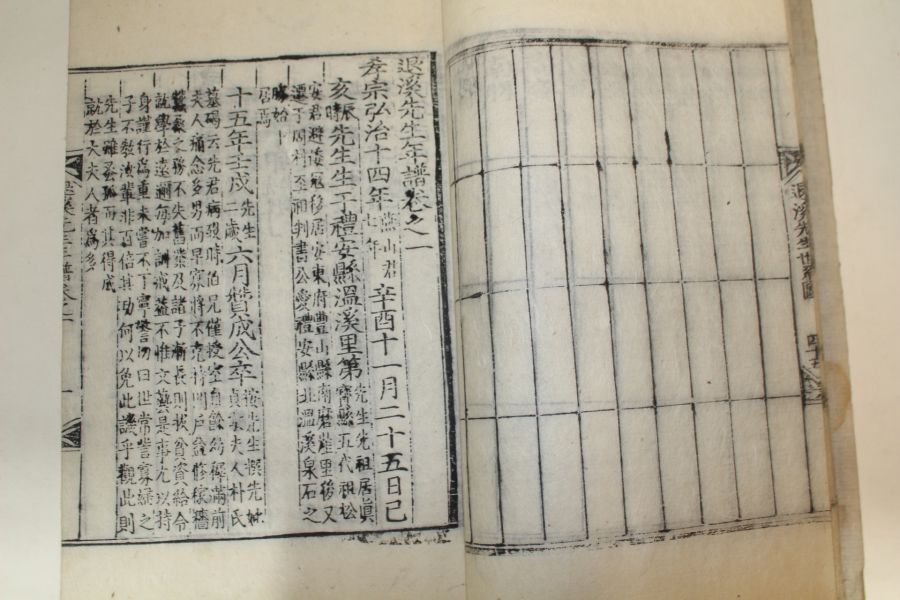 退溪先生世系圖
退溪先生年譜卷之一
孝宗弘治十四年燕山君七年辛酉十一月二十五日己
亥辰時先生生于禮安縣溫溪里第先生先祖居眞寶縣五代祖松
安君避倭寇移居安東府豐山縣南磨崖里後又
遷于周村至祖判書公愛禮安縣北溫溪泉石之
勝始卜
居焉
十五年壬戌先生二歲六月贊成公卒後先生撰先妣貞夫人朴氏
墓碣云先君病歿時伯兄僅授室自餘幼稚滿前
夫人痛念多男而早寡將不克持門戶益修稼穡
蠶桑之務不失舊業及諸子漸長則拔貧資給令
就學於遠邇每加訓戒蓋不惟文藝是事尤以持
身謹行爲重未嘗不丁寧警切曰世常詈寡婦之
子不敎汝輩非百倍其功何以免此譏乎觀此則
先生雖蚤孤而其得成
就於大夫人者爲多